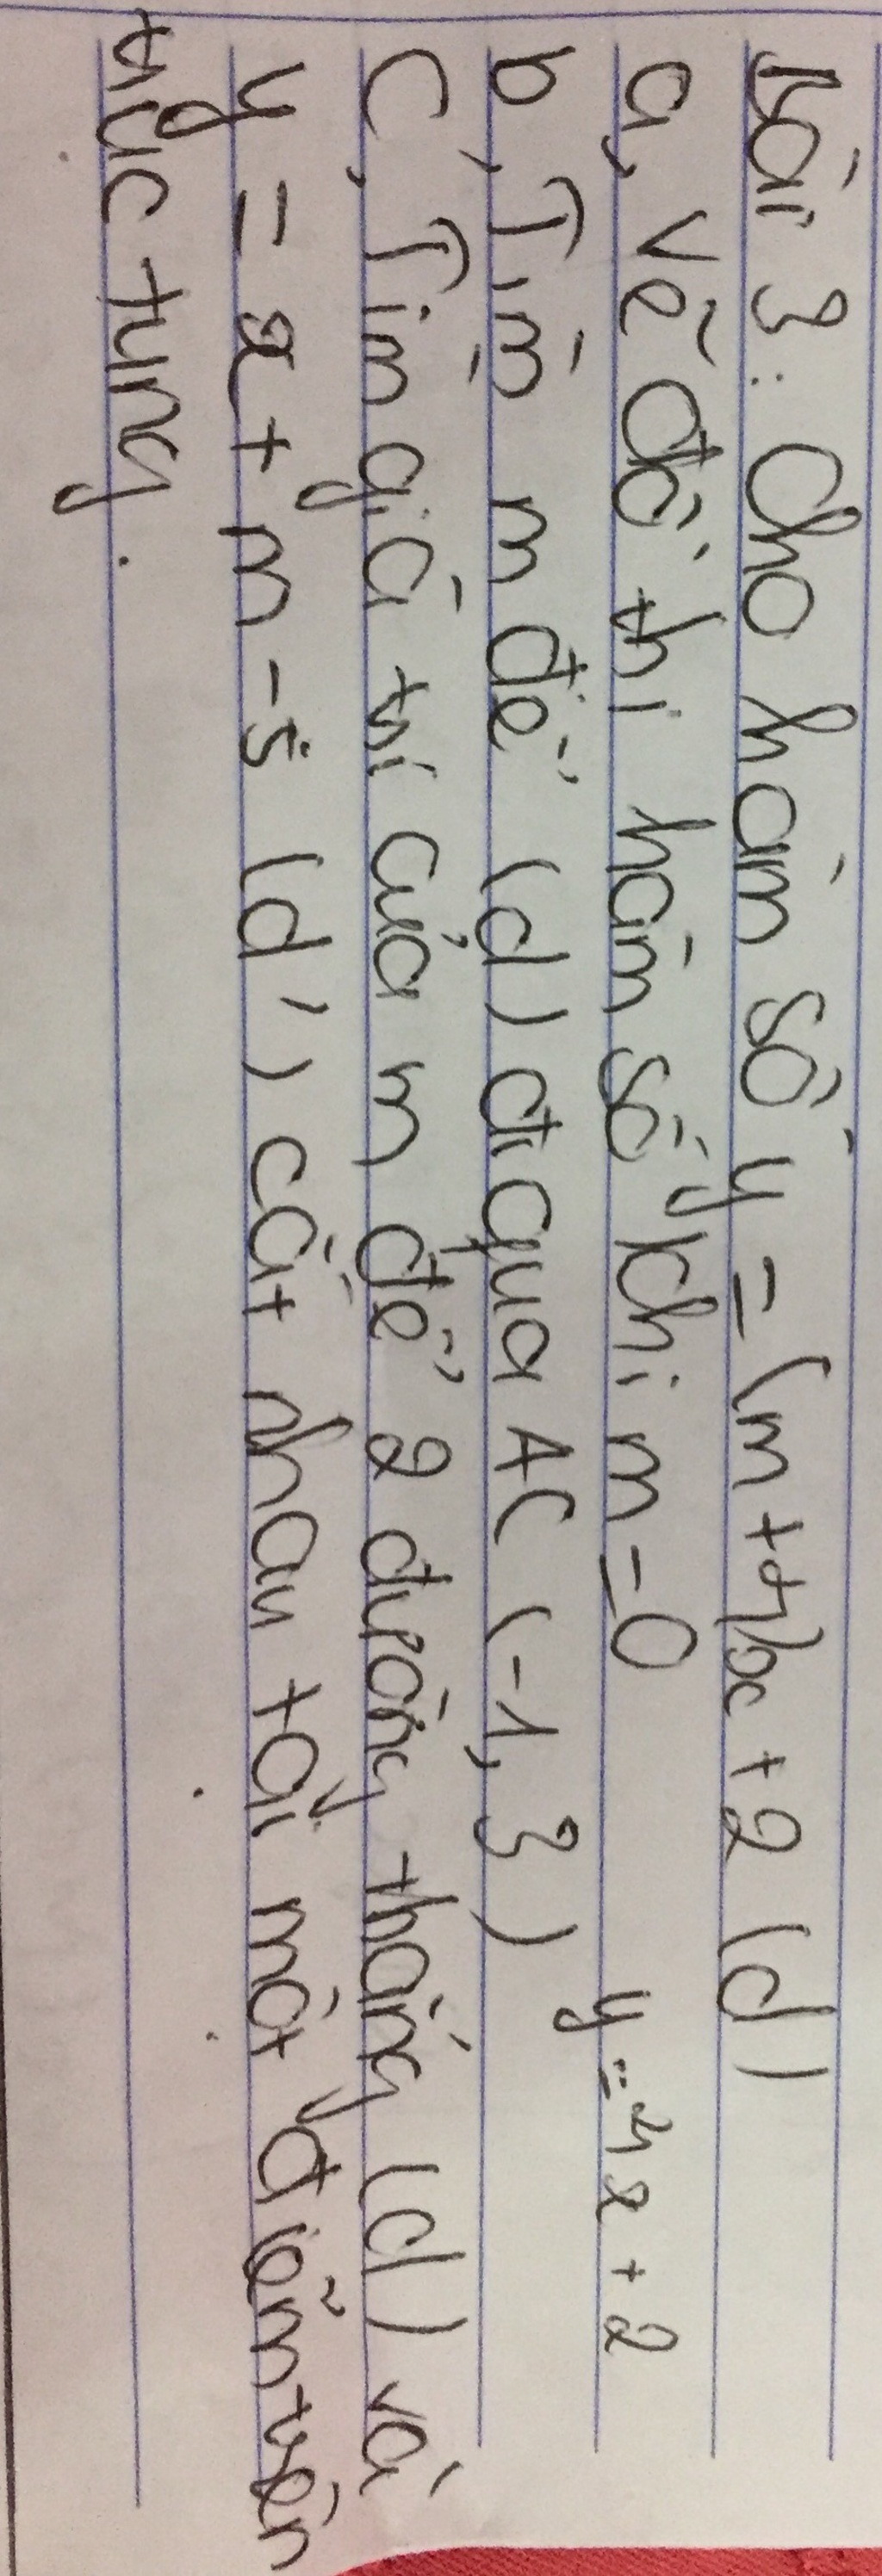 Bài 3: Cho hàm số y = (m+4)x + 2 (d)
a, vẽ đồ thị hàm số khi m = 0 y = 4x + 2
b, Tìm m để (d) đi qua A( (-1, 3)
C, Tìm giá trị của m để 2 đường thẳng (d) và
y = x + m - 5 (d') cắt nhau tại một điểm trên
trục tung.